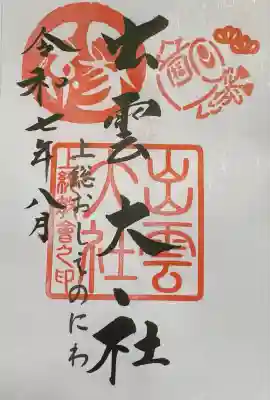 出雲大社
上総おしえのにわ
令和七年八月
出雲
大社
上総教會之印